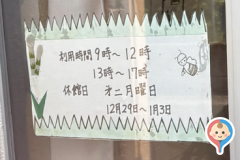 利用時間 9時〜12時
13時〜17時
休館日 第二月曜日
12月29日〜1月3日